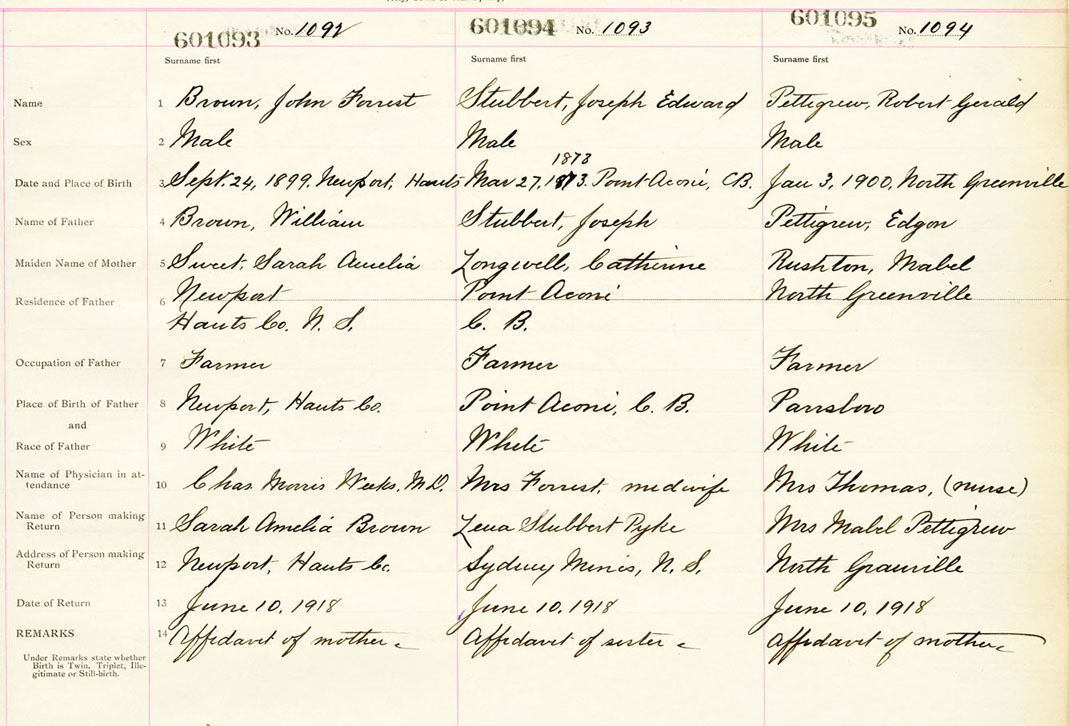 601093 No. 1092 601094 No. 1093 601095 No. 1094
Surname first Surname first Surname first
Name 1 Brown, John Forrest Stubbert, Joseph Edward Pettigrew, Robert Gerald
Sex 2 Male Male Male
1873
Date and Place of Birth 3 Sept. 24, 1899. Newport, Hants Mar 27, 1873. Point Aconi, C.B. Jan 3, 1900, North Greenville
Name of Father 4 Brown, William Stubbert, Joseph Pettigrew, Edgon
Maiden Name of Mother 5 Sweet, Sarah Amelia Longwell, Catherine Rushton, Mabel
Residence of Father 6 Newport Point Aconi North Greenville
Hants Co. N. S. C. B.
Occupation of Father 7 Farmer Farmer Farmer
Place of Birth of Father 8 Newport, Hants Co. Point Aconi, C. B. Parrsboro
and
Race of Father 9 White White White
Name of Physician in at-
tendance 10 Chas Morris Weeks, M.D. Mrs Forrest, medwife Mrs Thomas, (nurse)
Name of Person making
Return 11 Sarah Amelia Brown Lena Stubbert Pyke Mrs Mabel Pettigrew
Address of Person making
Return 12 Newport, Hants Co. Sydney Mines, N. S. North Granville
Date of Return 13 June 10, 1918 June 10, 1918 June 10, 1918
REMARKS 14 Affidavit of mother Affidavit of sister Affidavit of mother
Under Remarks state whether
Birth is Twin, Triplet, Ille-
gitimate or Still-birth.